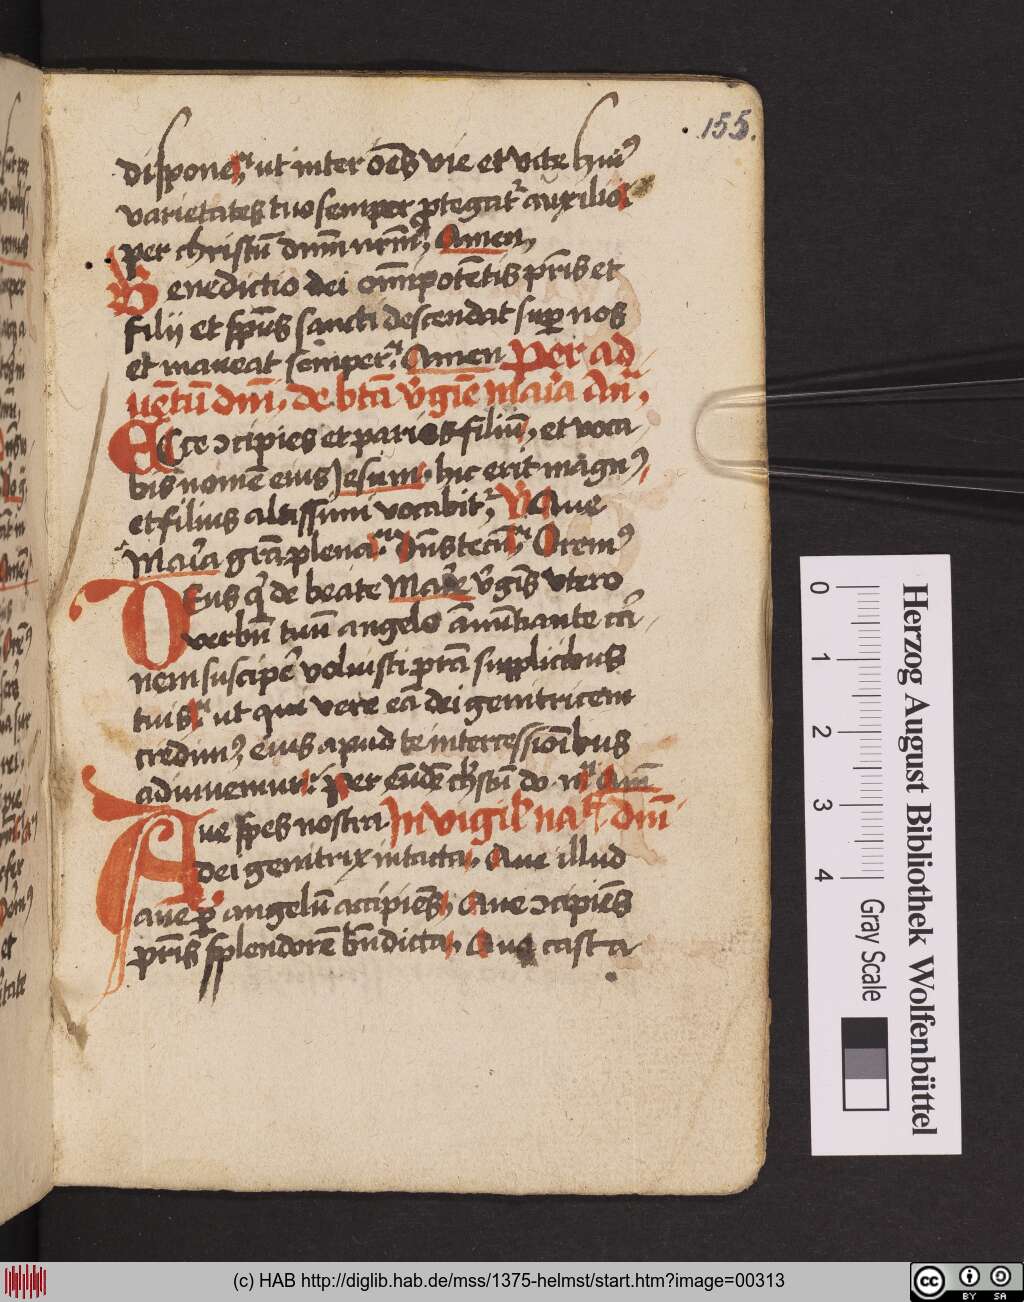 155.
disponeꝫ ut inter oēs vie et vite huiꝰ
varietates tuo semper ꝓtegat᷑ auxilio
per christū dnm̄ nrm̄ꝫ Amen,
Benedictio dei om̄ipotētis pr̄is et
filij et sp̄us sancti descendat suꝑ nos
et maneat semper. Amen Per ad
uētū dn̄i, de btā v̓gīe maīa An̄,
ECce ↄcipies et paries filiū, et voca
bis nomē eius Jesum. hic erit magnꝰ
et filius altissimi vocabit᷑ V̓ Aue
Maīa grā plena Dn̄s tecū Oremꝰ
DEus q̓ de beate Marie v̓gīs vtero
verbū tuū angelo ānūtiante car
nem suscipe̓ voluisti pr̄ta supplicibus
tuis ut qui vere eā dei genitricem
credimꝰ, eius apud te intercessiōibus
adiuuemur. per eūdē ch̓stū do nr̄ Am̄
Aue spes nostra In vigil̓ nat̓ dn̄i
dei genitrix intacta. Aue illud
aue ꝑ angelū accipiēs, Aue ↄcipiēs
pr̄is splendorē bn̄dicta, Aue casta
0 1 2 3 4
Gray Scale
Herzog August Bibliothek Wolfenbüttel
(c) HAB http://diglib.hab.de/mss/1375-helmst/start.htm?image=00313
cc BY SA